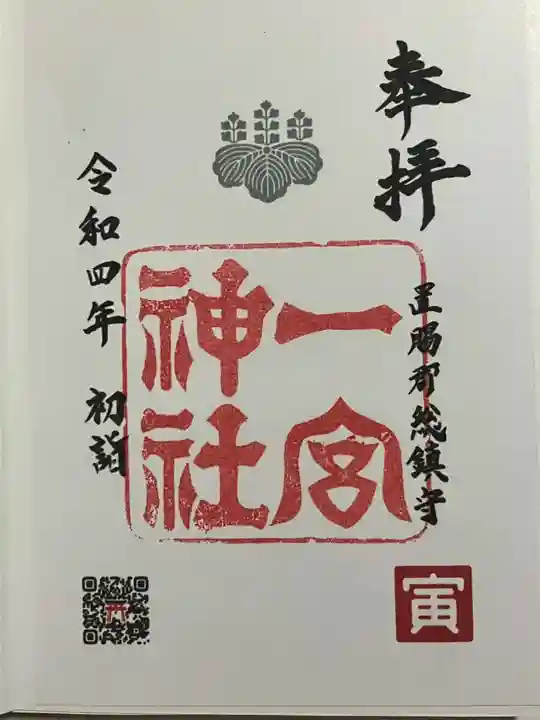 奉拝
置賜郡総鎮守
一宮
神社
令和四年 初詣
寅